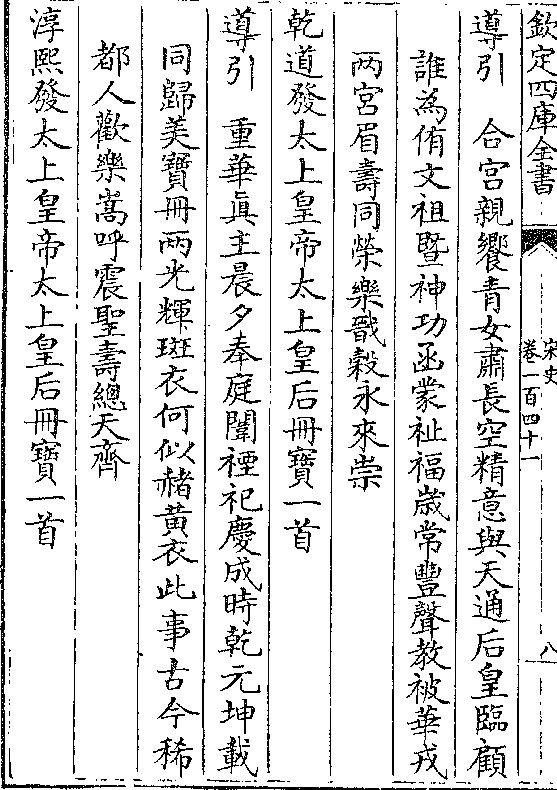 欽定四庫全書
宋史
卷一百四十一
八
導引　合宮親饗青女肅長空精意與天通后皇臨顧
誰為侑文祖暨神功函蒙祉福歲常豐聲教被華戎
兩宮眉壽同榮樂戩穀永來崇
乾道發太上皇帝太上皇后冊寶一首
導引　重華真主晨夕奉庭闈禋祀慶成時乾元坤載
同歸美寶冊兩光輝斑衣何似赭黃衣此事古今稀
都人歡樂嵩呼震聖壽總天齊
淳熙發太上皇帝太上皇后冊寶一首